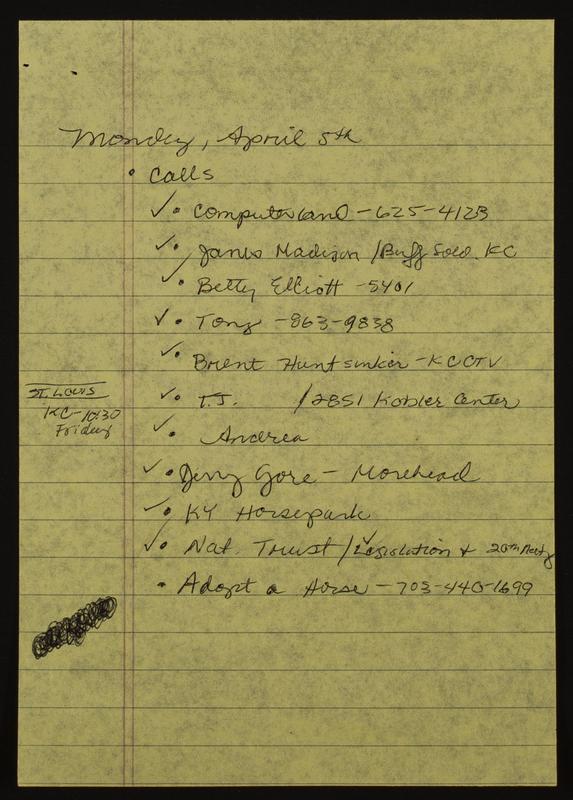 Monday, April 5th
• Calls
✓ • Computerland - 625-4123
✓ • James Madison / Buff Sold. KC
✓ • Betty Elliott - 5401
✓ • Tony - 863-9838
✓ • Brent Huntsinker - KCCTV
✓ • T.J. / 2851 Kobler Center
✓ • Andrea
✓ • Jerry Gore - Morehead
✓ • KY Horsepark
✓ • Nat. Trust / Legislation + 20th Meetg
• Adopt a Horse - 703-440-1699
St. Louis
KC-10:30
Friday